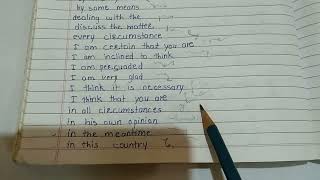 by some means
dealing with the
discuss the matter
every circumstance
I am certain that you are
I am inclined to think
I am persuaded
I am very glad
I think it is necessary
I think that you are
in all circumstances
in his own opinion
in the meantime
in this country